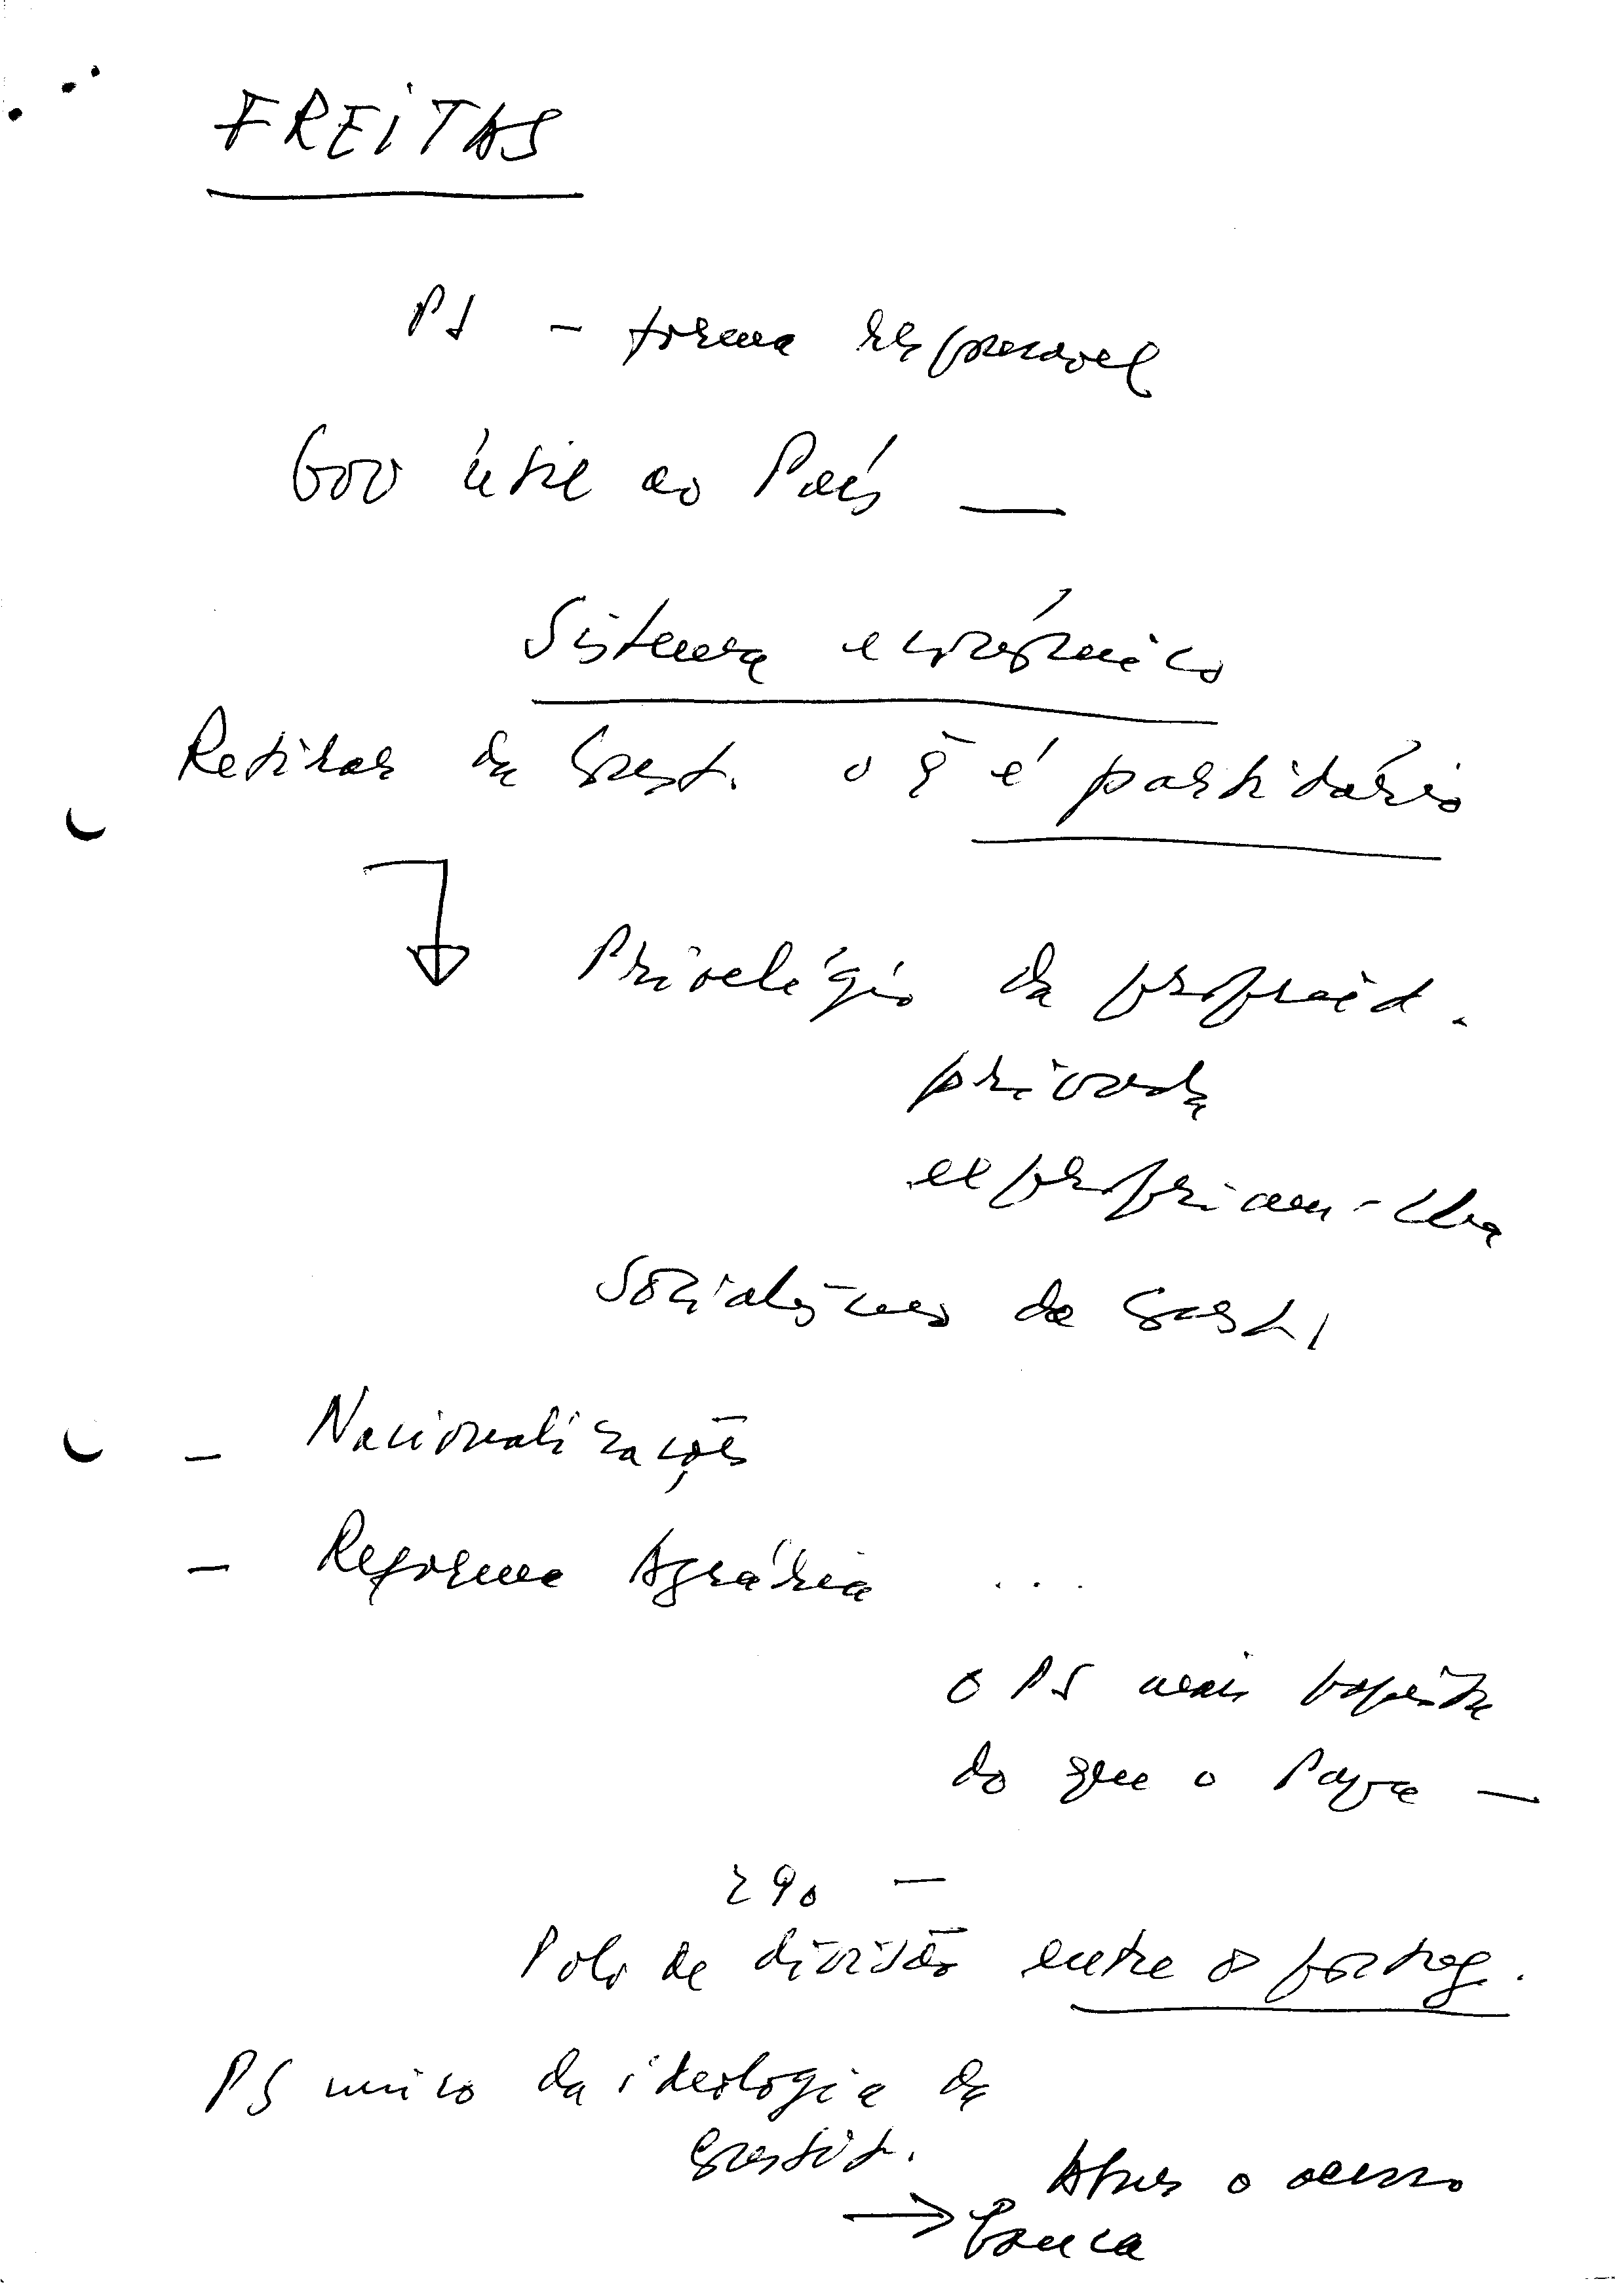 FREITAS
PS - forma responsavel
Gov útil ao País —
Sistema económico
Retirar da Const. o q̃ é partidário
Privelégio da propried.
privada
Socialismo da Const,
- Nacionalizações
- Reforma Agrária ...
O PS mais papista
do que o Papa —
290 —
Polo de divisão entre os portug.
PS unico da ideologia da
Constit.
Abrir o acesso
→ Banca